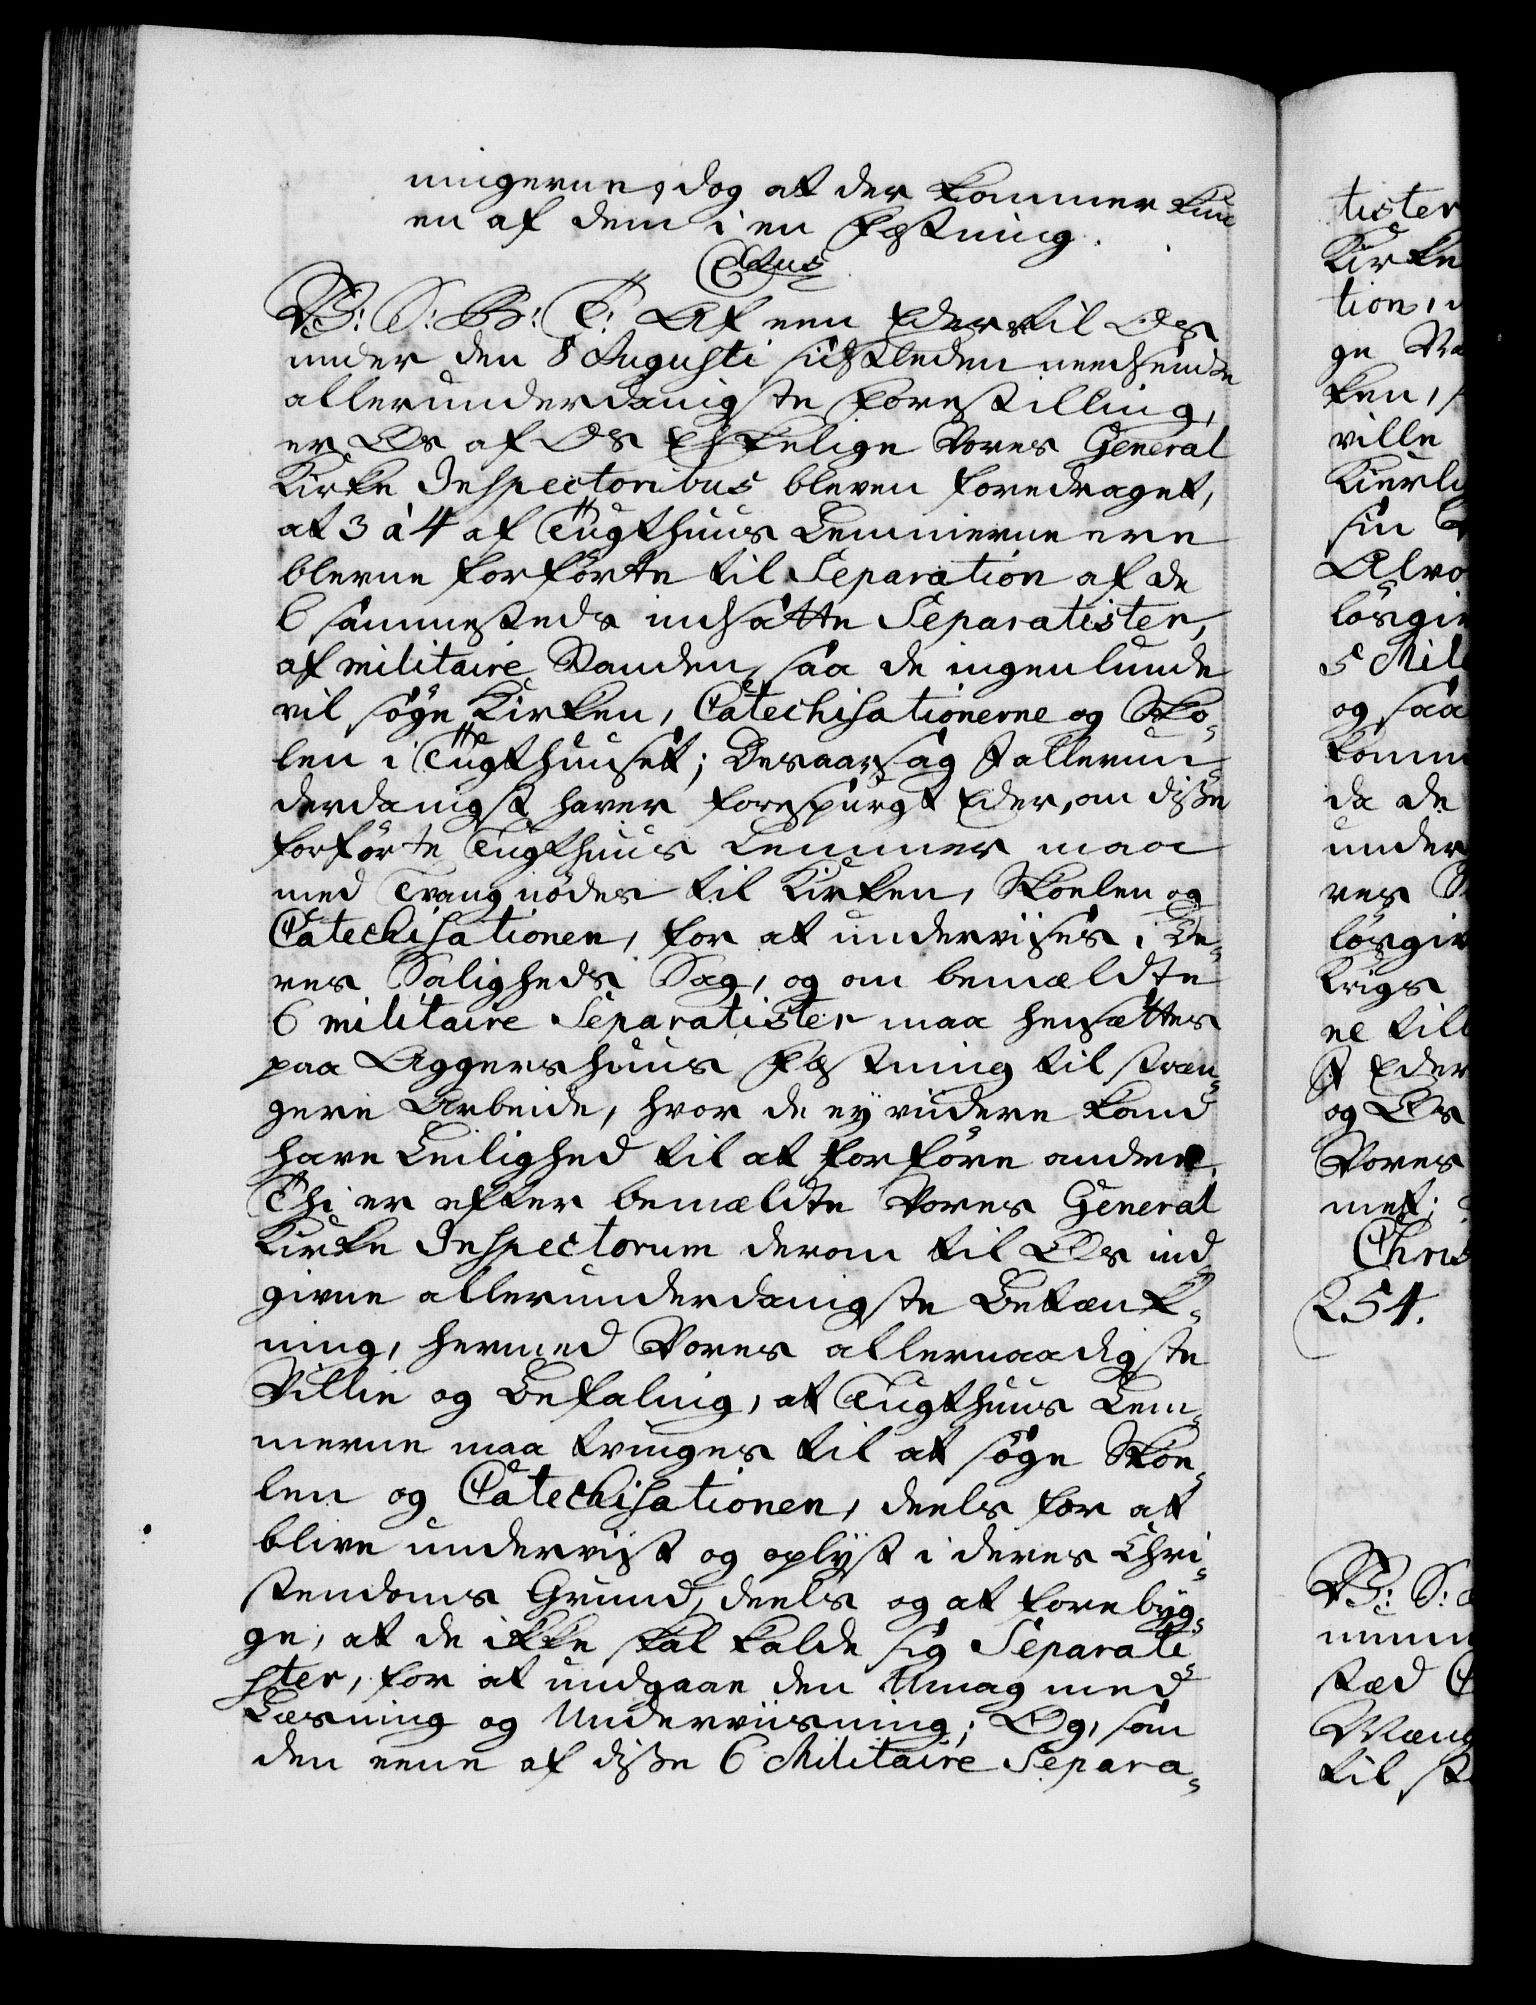 ningerne, dog at der kommer kun
en af dem i en Fæstning.
V: S: G: T: Af een Eder til Os
under den 8 Augusti sidstleden needsendte
allerunderdanigste Forestilling,
er Os af Os Elskelige Vores General
Kirke Inspectoribus bleven foredraget,
at 3 à 4 af Tugthuus Lemmerne ere
blevne forførte til Separation af de
6 sammesteds indsatte Separatister,
af militaire Standen, saa de ingenlunde
vil søge Kirken, Catechisationerne og Sko-
len i Tugthuuset; Desaarsag I allerun-
derdanigst haver forespurgt Eder, om disse
forførte Tugthuus Lemmer maa
med Trang nödes til Kirken, Skoelen og
Catechisationen, for at underviises i De-
res Saligheds Sag, og om bemældte
6 militaire Separatister maa hensættes
paa Aggershuus Fæstning til stræn-
gere Arbeide, hvor de ey videre kand
have Leilighed til at forføre andre.
Thi er efter bemældte Vores General
Kirke Inspectorum derom til Os ind-
givne allerunderdanigste Betænk-
ning, hermed Vores allernaadigste
Villie og Befaling, at Tugthuus Lem-
merne maa tvinges til at søge Skoe-
len og Catechisationen, deels for at
blive underviist og oplyst i deres Chri-
stendoms Grund, deels og at forebyg-
ge, at de ikke skal kalde sig Separati-
ster, for at undgaae den Umag med
Læsning og Underviisning; Og, som
den eene af disse 6 Militaire Separa-
tister
Kirke
tion,
ge
ken,
ville
Kierli
sin
Alvo
løsgiv
5 Mil
og saa
komm
da de
under
res
løsgiv
Krigs
el till
I Eder
og Os
Vores
met;
Chris
254.
V: S:
til